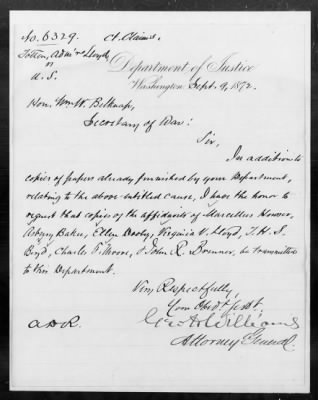 No. 6329. Ct. Claims.
Totten, Admr. Lloyd,
vs
U.S.
Department of Justice
Washington, Sept. 9, 1872.
Hon. Wm. W. Belknap,
Secretary of War:
Sir,
In addition to
copies of papers already furnished by your Department,
relating to the above-entitled cause, I have the honor to
request that copies of the affidavits of Marcellus Howser,
Asbury Baker, Ellen Dooly, Virginia V. Lloyd, T. H. S.
Boyd, Charles T. Moore, & John R. Brenner, be transmitted
to this Department.
Very Respectfully,
Your Obedt. Servt.
Geo H Williams
Attorney General.